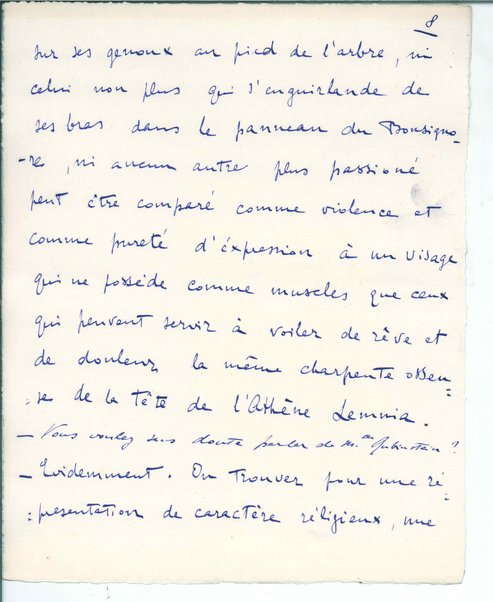 8
sur ses genoux au pied de l'arbre, ni
celui non plus qui s'enguirlande de
ses bras dans le panneau du Bonsigno-
-re, ni aucun autre plus passioné
peut être comparé comme violence et
comme pureté d'éxpression à un visage
qui ne possède comme muscles que ceux
qui peuvent servir à voiler de rêve et
de douleur, la même charpente osseu-
-se de la tête de l'Athêne Lemnia.
— Vous voulez sans doute parler de M.me Rubinstein ?
— Evidemment. Ou trouver pour une ré-
:presentation de caractère réligieux, une